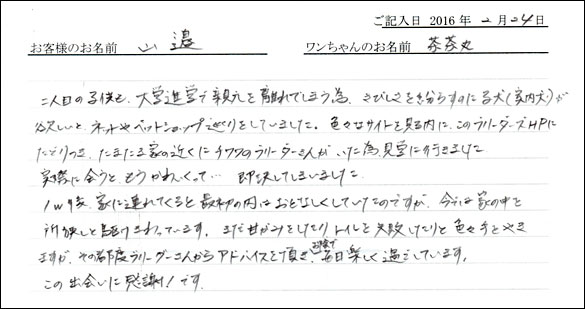 ご記入日 2016年 2月 24日
お客様のお名前 山邉 ワンちゃんのお名前 茶茶丸
二人目の子供も、大学進学で親元を離れてしまう為、さびしさを紛らすのに子犬(室内犬)が
欲しいと、ネットやペットショップ巡りをしていました。色々なサイトを見る内に、このブリーダーズHPに
たどりつき、たまたま家の近くにチワワのブリーダーさんがいた為、見学に行きました
実際に会うと、もうかわいくって… 即決してしまいました
1w後、家に連れてくると最初の内はおとなしくしていたのですが、今では家の中を
所狭しと駆けまわっています。まだ甘がみをしたりトイレを失敗したりと色々手をやき
ますが、その都度ブリーダーさんからアドバイスを頂き、お陰で毎日楽しく過ごしています。
この出会いに感謝!です。